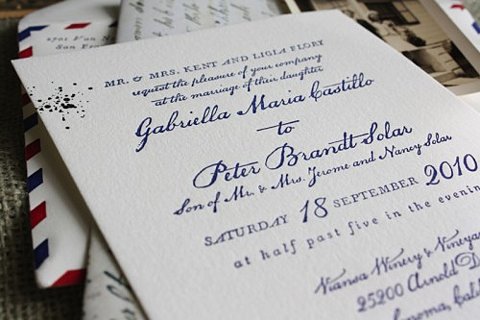 1701 Van N
San Fran
MR. & MRS. KENT AND LIGIA FLORY
request the pleasure of your company
at the marriage of their daughter
Gabriella Maria Castillo
to
Peter Brandt Solar
Son of Mr. & Mrs. Jerome and Nancy Solar
SATURDAY 18 SEPTEMBER 2010
at half past five in the evening
Viansa Winery & Vineyar
25200 Arnold D
Sonoma, Calif